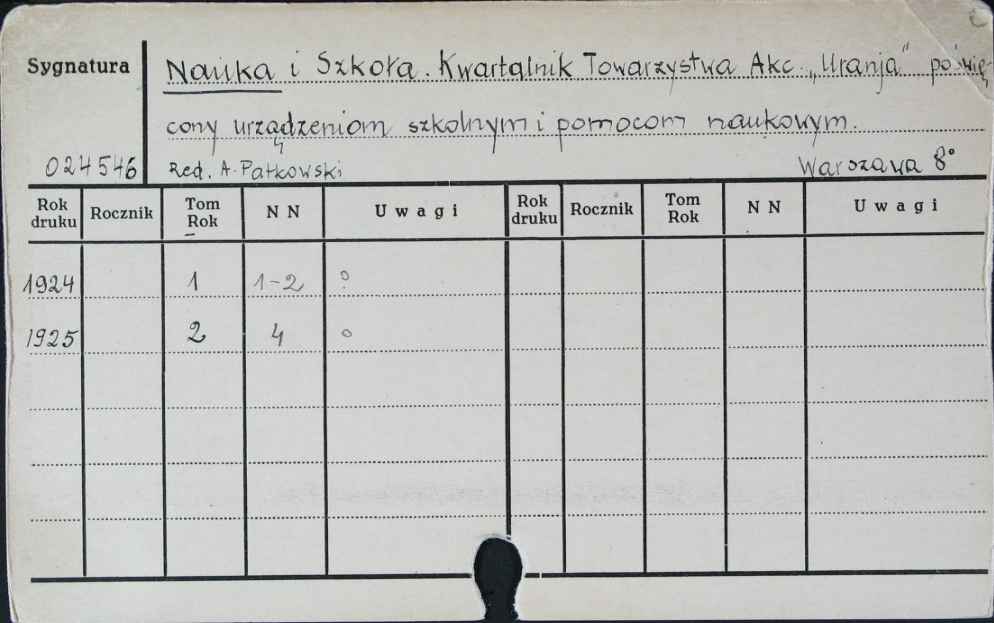 Sygnatura
Nauka i Szkoła. Kwartalnik Towarzystwa Akc. „Uranja" poświę-
cony urządzeniom szkolnym i pomocom naukowym.
024546 Red. A. Patkowski Warszawa 8°
Rok druku Rocznik Tom Rok NN Uwagi Rok druku Rocznik Tom Rok NN Uwagi
1924 1 1-2 ?
1925 2 4 o